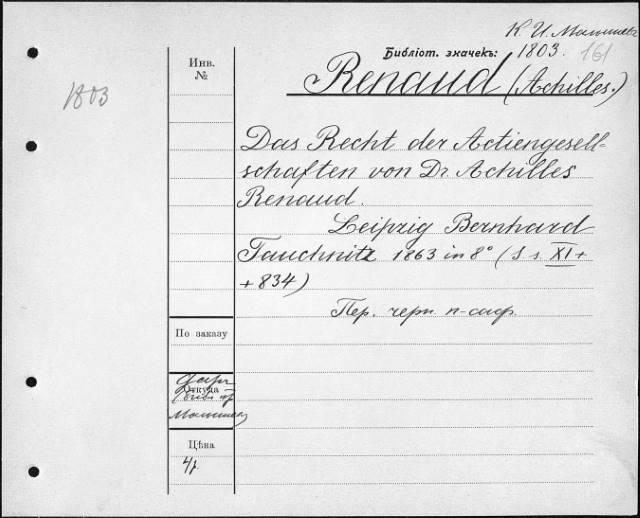 К. И. Малышевъ
Библіот. значекъ: 1803. 161
Инв.
№
1803
Renaud (Achilles.)
Das Recht der Actiengesell-
schaften von Dr. Achilles
Renaud.
Leipzig Bernhard
Tauchnitz 1863 in 8° (S s. XI +
+ 834)
Пер. черн. п-саф.
По заказу
Откуда
Цѣна